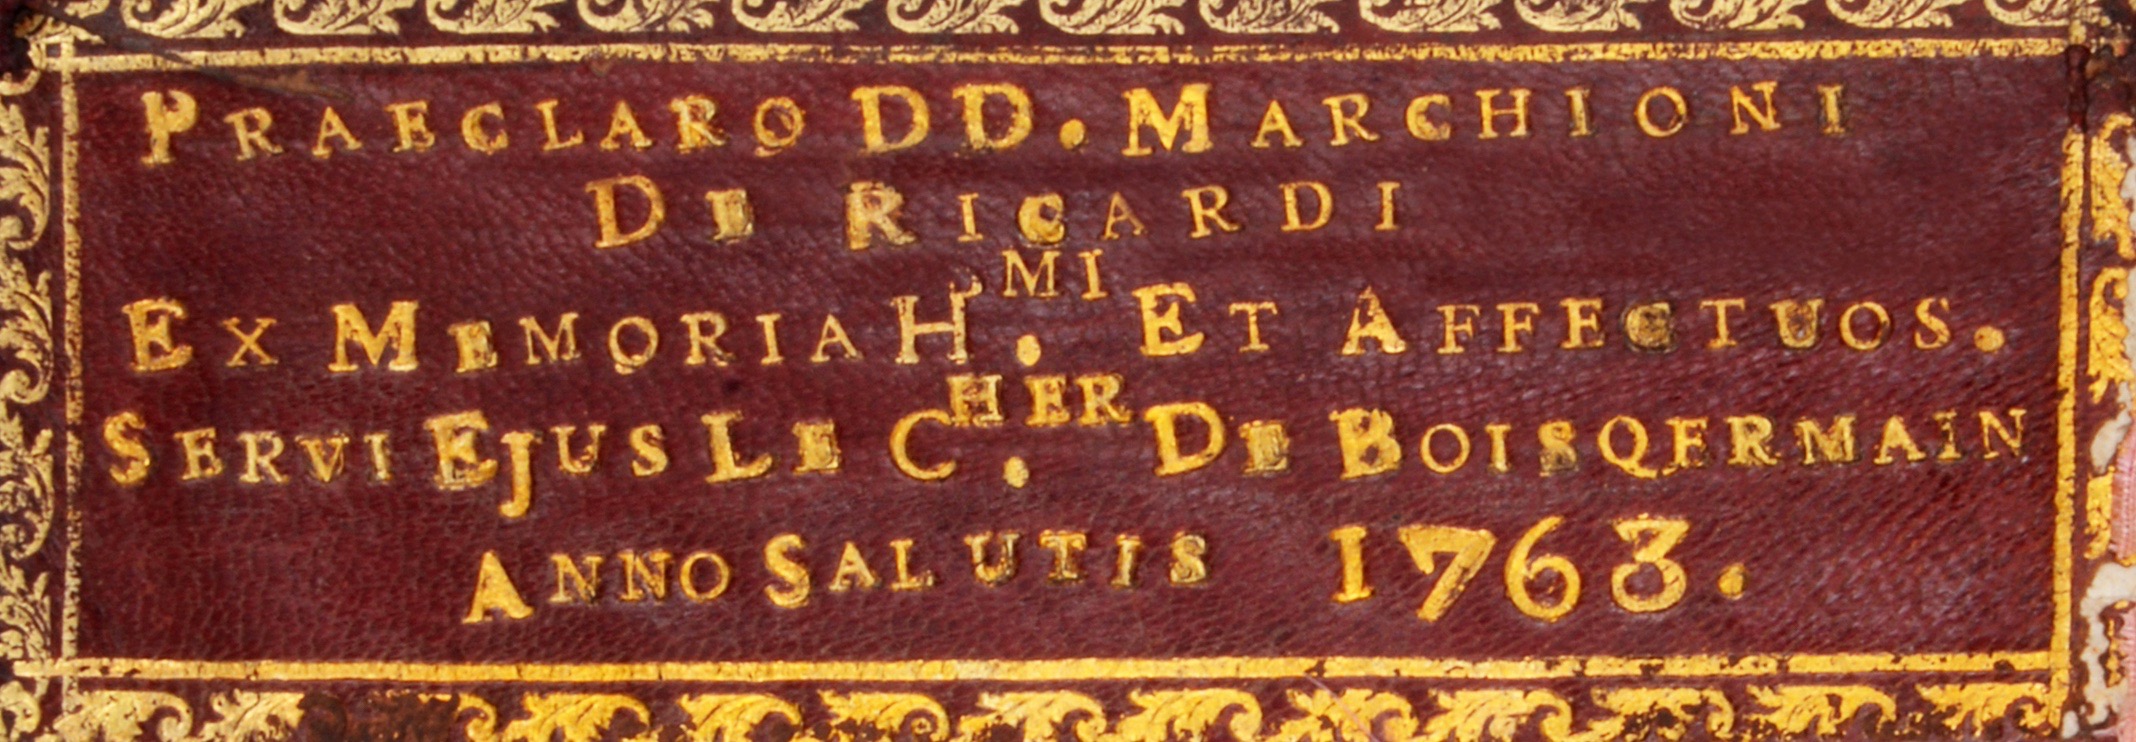 PRAECLARO DD. MARCHIONI
DE RICARDI
EX MEMORIA H.MI ET AFFECTUOS.
SERVI EJUS LE C.HER DE BOISQERMAIN
ANNO SALUTIS 1763.